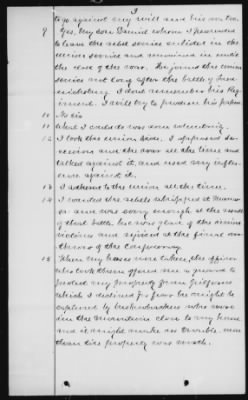 3
to go against my will and his own too.
9 Yes. My son Daniel whom I persuaded
to leave the rebel service enlisted in the
union service and remained in until
the close of the war. He joined the union
service not long after the battle of
I dont remember his Reg-
iment. I will try to produce his papers
10 No sir
11 What I could do was done voluntarily.
12 I took the union side. I opposed se-
cession and the war all the time and
talked against it, and used my influ-
ence against it.
13 I adhered to the union all the time.
14 I wanted the rebels whipped at Manas-
sas and was sorry enough at the result
of that battle, but was glad of the union
victories and rejoiced at the final on
throw of the Confederacy
15 When my horses were taken, the officer
who took them offered me a guard to
protect my property from
which I declined for fear he might be
captured by bushwhackers who were
in the mountains close to my house
and it might make me trouble more
than the property was worth.